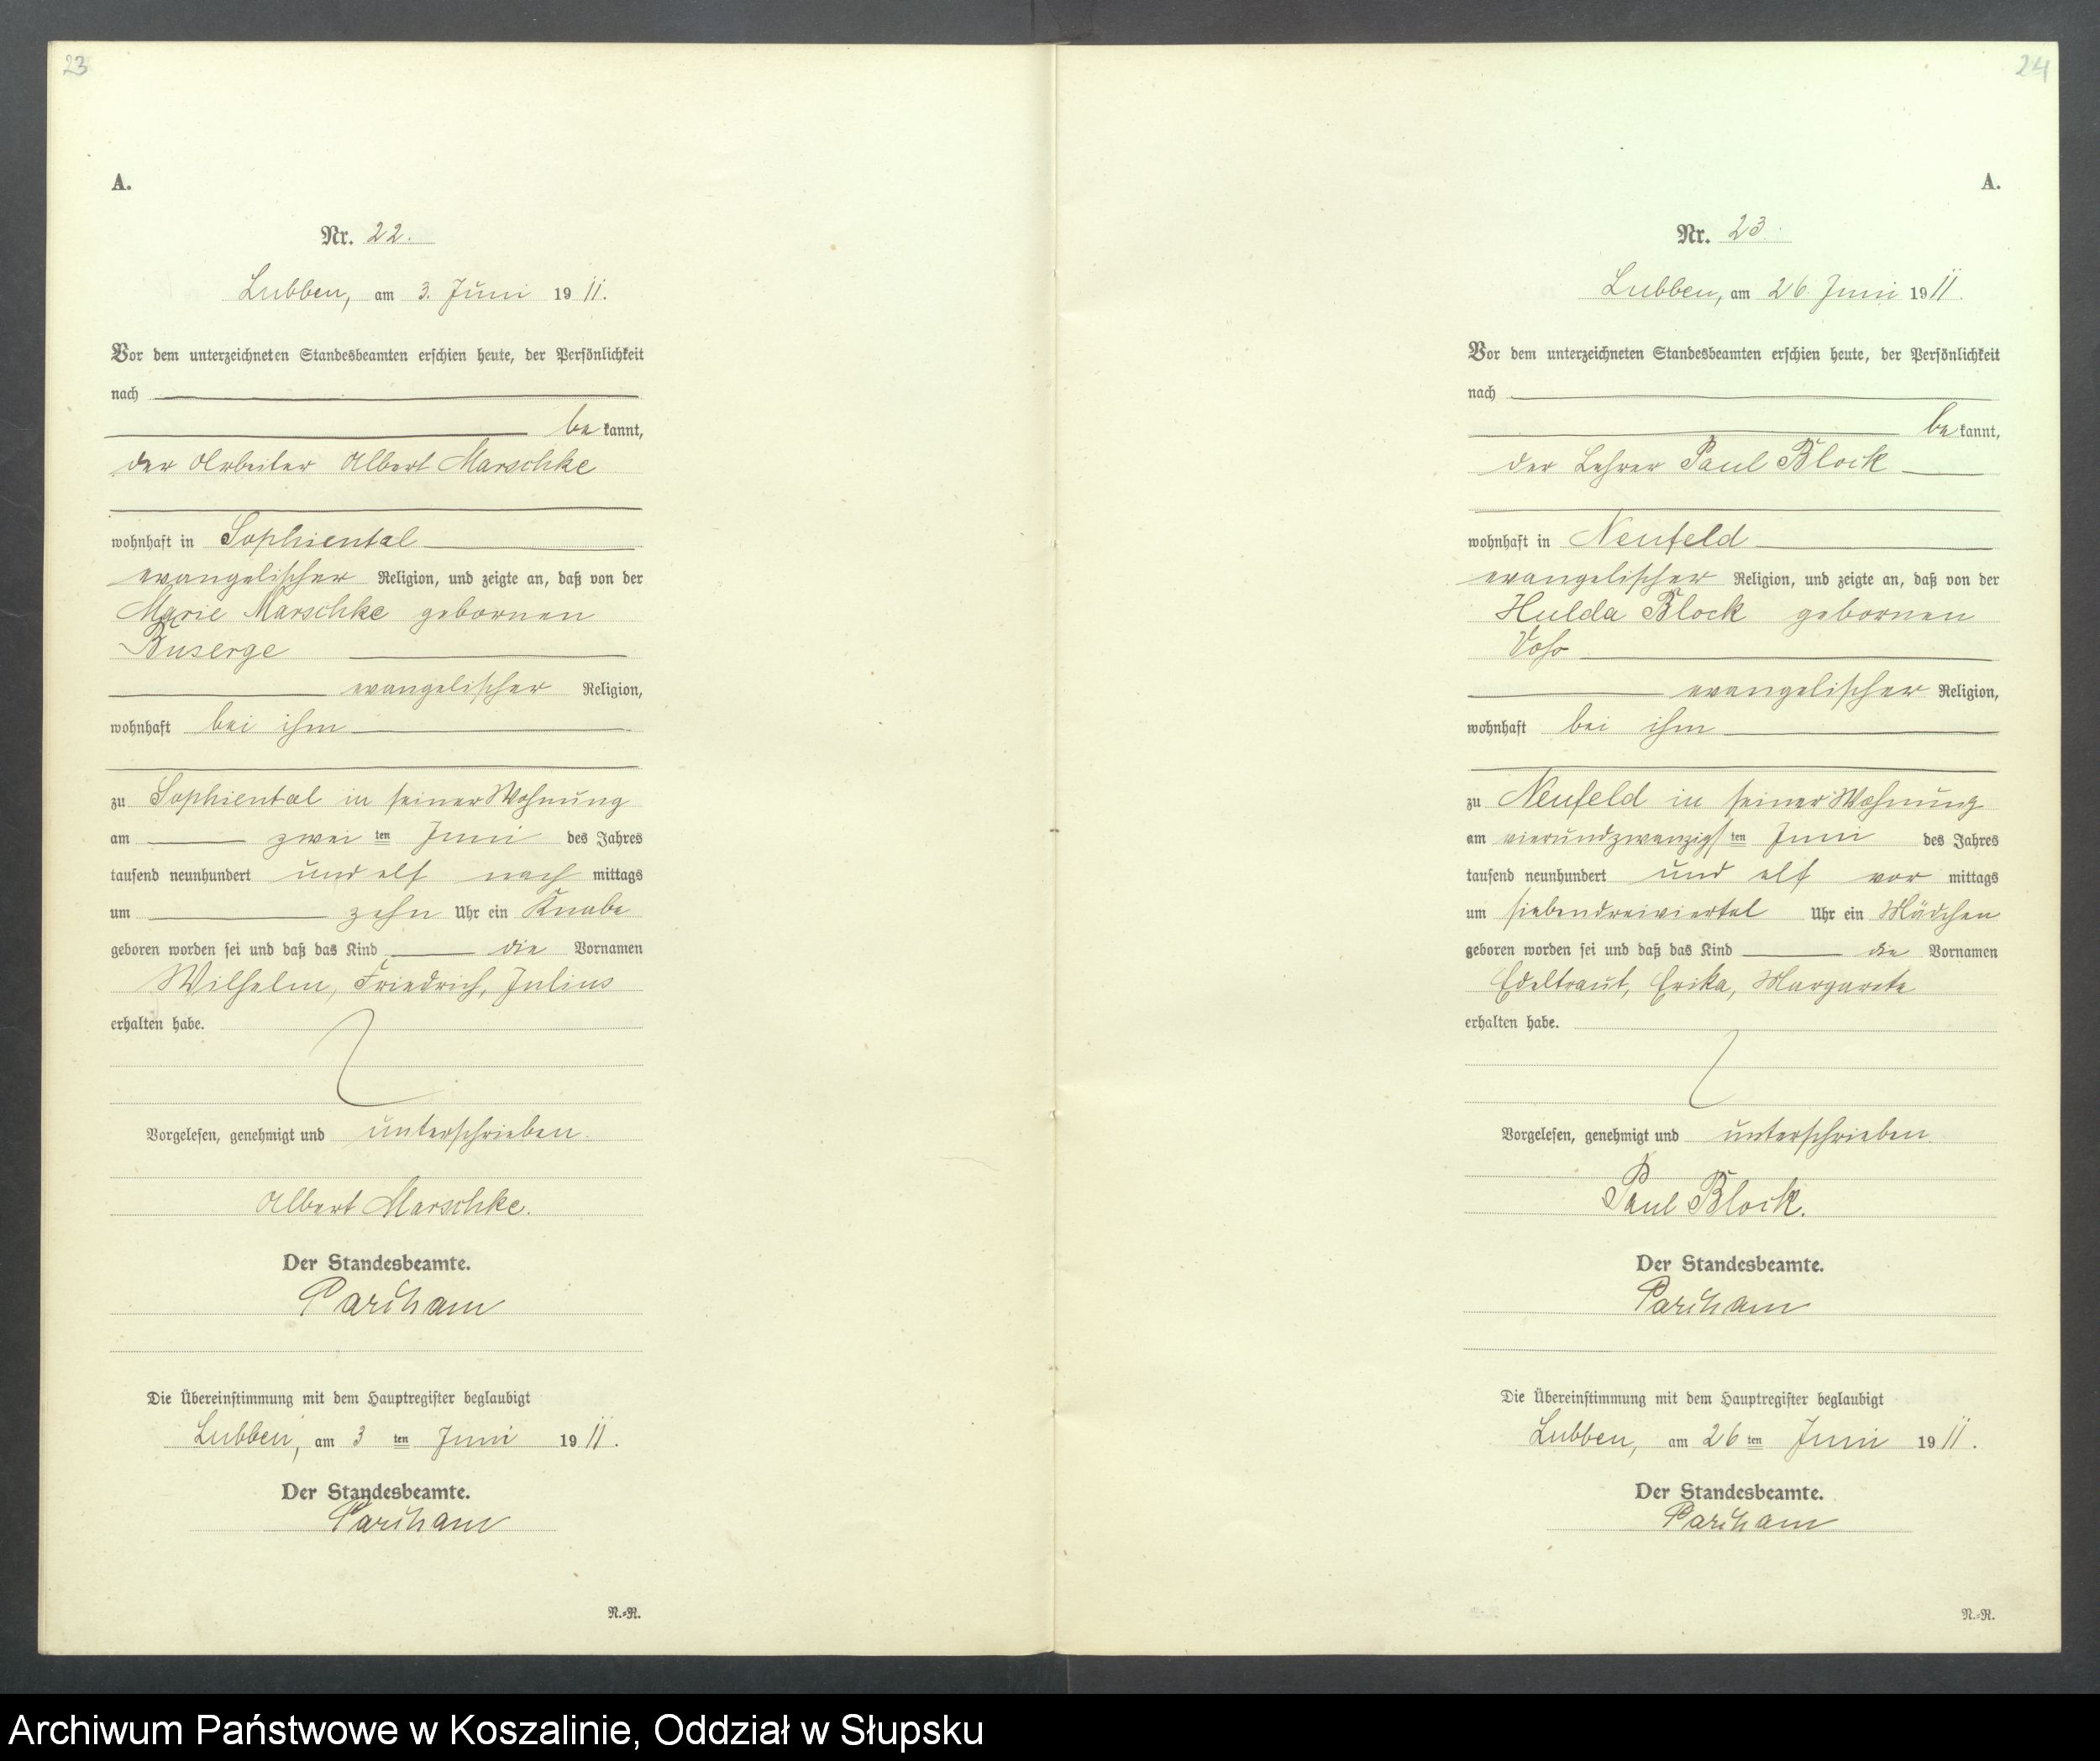 23
A.
Nr. 22.
Lubben, am 3. Juni 1911.
Vor dem unterzeichneten Standesbeamten erschien heute, der Persönlichkeit
nach
bekannt,
der Arbeiter Albert Marschke
wohnhaft in Sophiental
evangelischer Religion, und zeigte an, daß von der
Marie Marschke gebornen
Buserge
evangelischer Religion,
wohnhaft bei ihm
zu Sophiental in seiner Wohnung
am zwei ten Juni des Jahres
tausend neunhundert und elf nach mittags
um zehn Uhr ein Knabe
geboren worden sei und daß das Kind die Vornamen
Wilhelm, Friedrich, Julius
erhalten habe.
Vorgelesen, genehmigt und unterschrieben.
Albert Marschke.
Der Standesbeamte.
Parcham
Die Übereinstimmung mit dem Hauptregister beglaubigt
Lubben, am 3 ten Juni 1911.
Der Standesbeamte.
Parcham
N.=R.
24
A.
Nr. 23.
Lubben, am 26. Juni 1911.
Vor dem unterzeichneten Standesbeamten erschien heute, der Persönlichkeit
nach
bekannt,
der Lehrer Paul Block
wohnhaft in Neufeld
evangelischer Religion, und zeigte an, daß von der
Hulda Block gebornen
evangelischer Religion,
wohnhaft bei ihm
zu Neufeld in seiner Wohnung
am vierundzwanzigsten Juni des Jahres
tausend neunhundert und elf vor mittags
um siebendreiviertel Uhr ein Mädchen
geboren worden sei und daß das Kind die Vornamen
Edeltraut, Erika, Margarete
erhalten habe.
Vorgelesen, genehmigt und unterschrieben
Paul Block.
Der Standesbeamte.
Parcham
Die Übereinstimmung mit dem Hauptregister beglaubigt
Lubben, am 26 ten Juni 1911.
Der Standesbeamte.
Parcham
N.=R.
Archiwum Państwowe w Koszalinie, Oddział w Słupsku